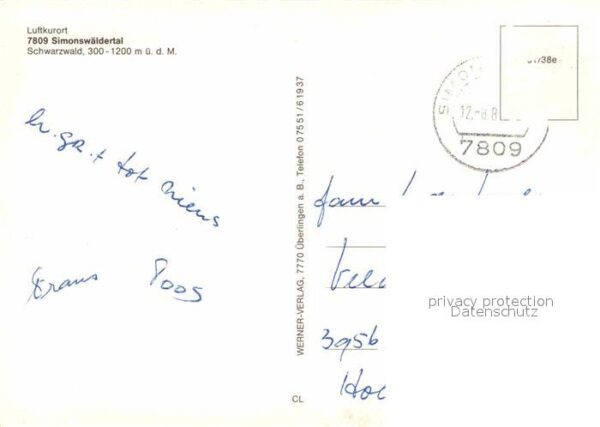 Luftkurort
7809 Simonswäldertal
Schwarzwald, 300-1200 m ü. d. M.
h. gr. + tot ziens
Frans Toos
WERNER-VERLAG, 7770 Überlingen a. B., Telefon 07551/61937
CL
12.-8.8
7809
/38e
fam
3956
privacy protection
Datenschutz